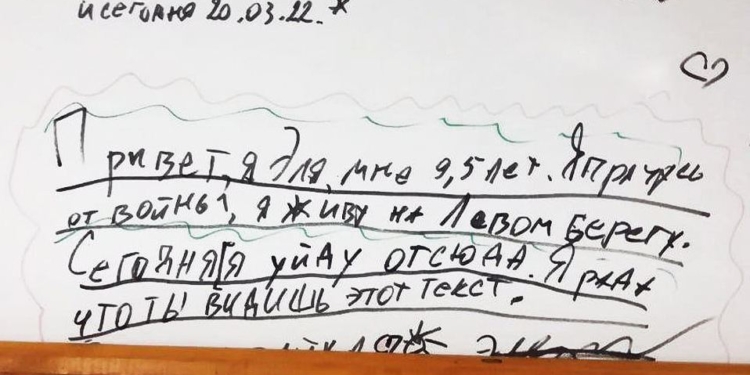 и сегодня 20.03.22.*
Привет, я Эля, мне 9,5 лет. Я прячусь
от войны, я живу на Левом берегу.
Сегодня я уйду отсюда. Я рада
что ты видишь этот текст.